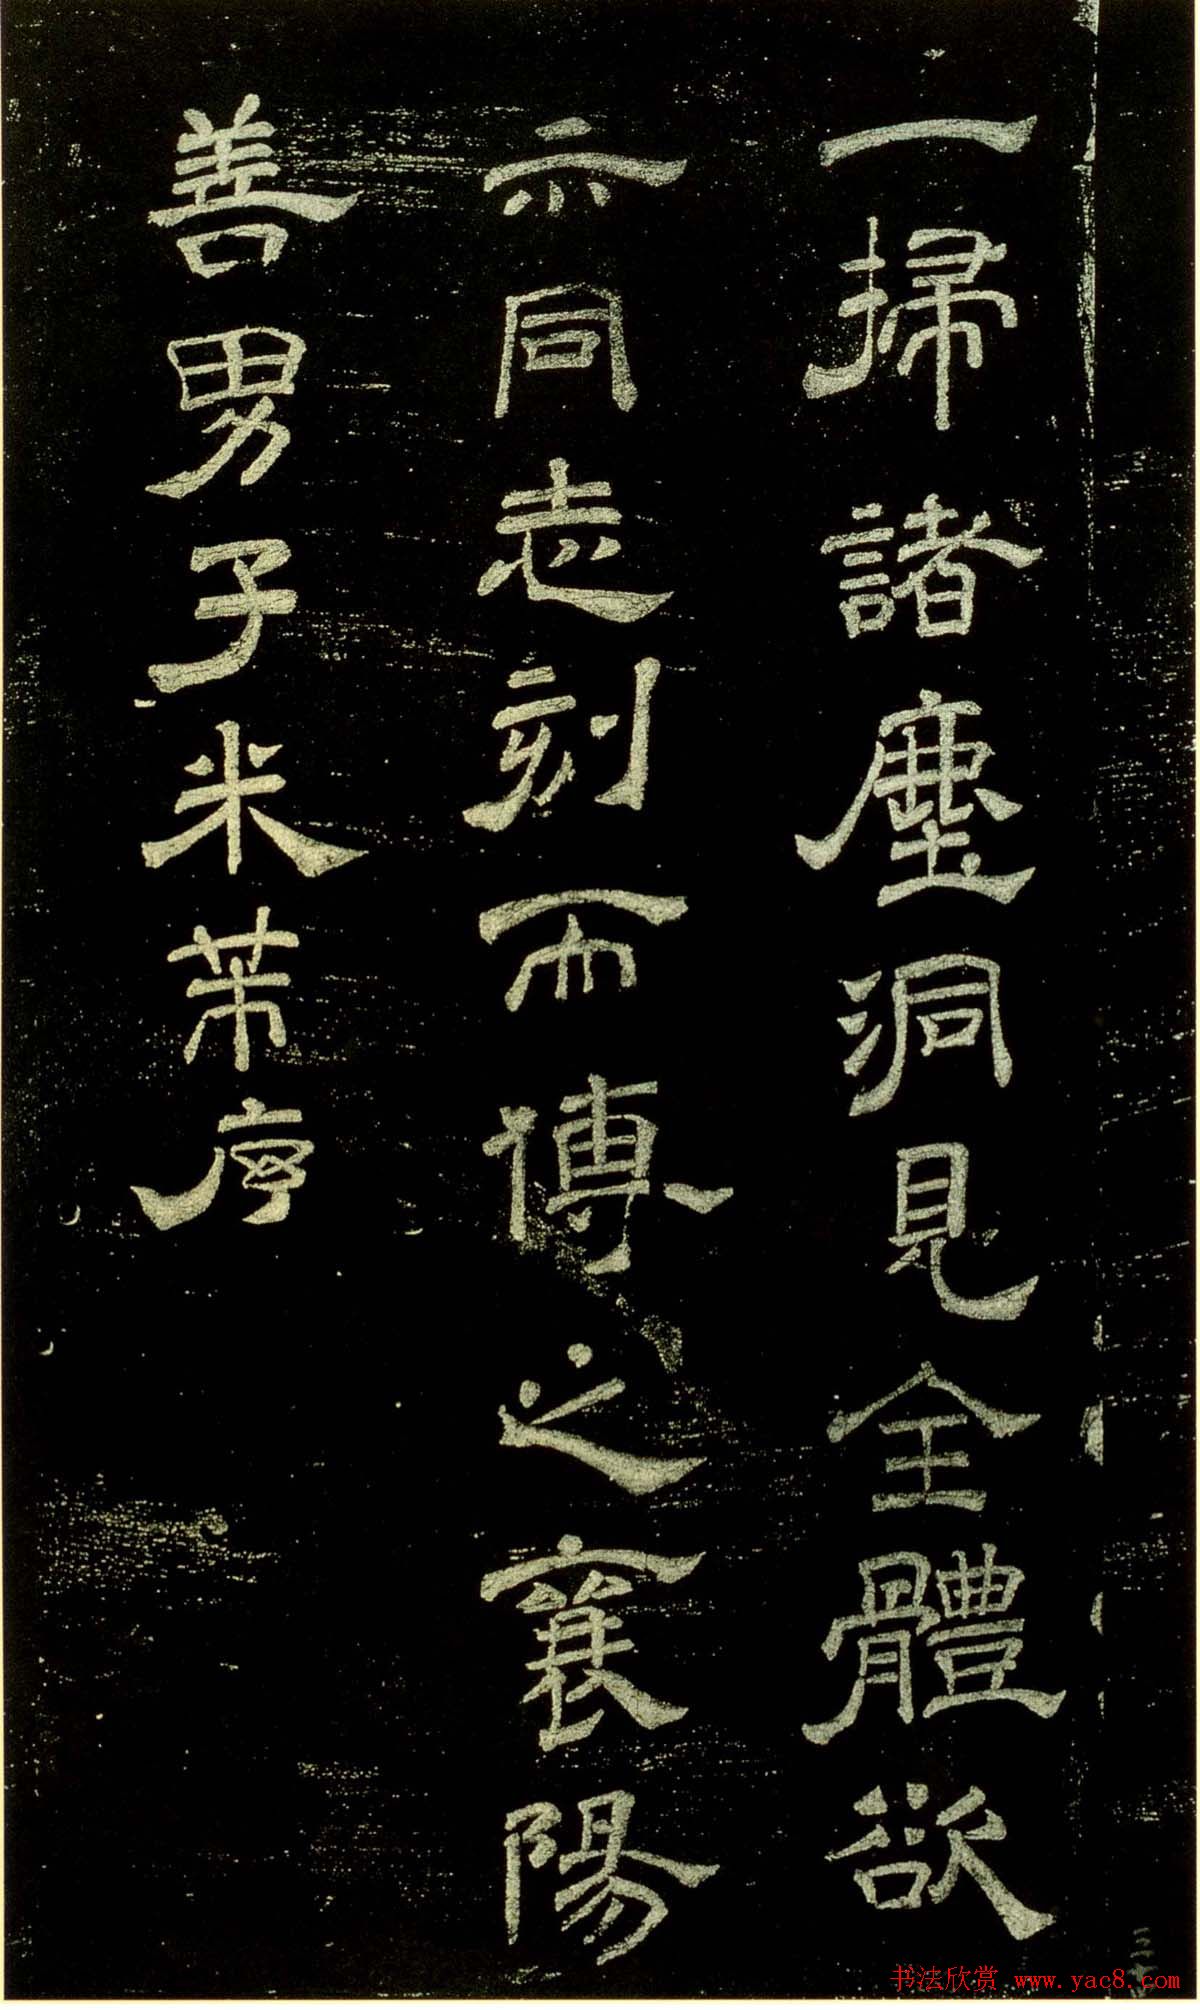 一掃諸塵洞見全體欲
示同志刻而傳之襄陽
善男子米芾序
书法欣赏 www.yac8.com